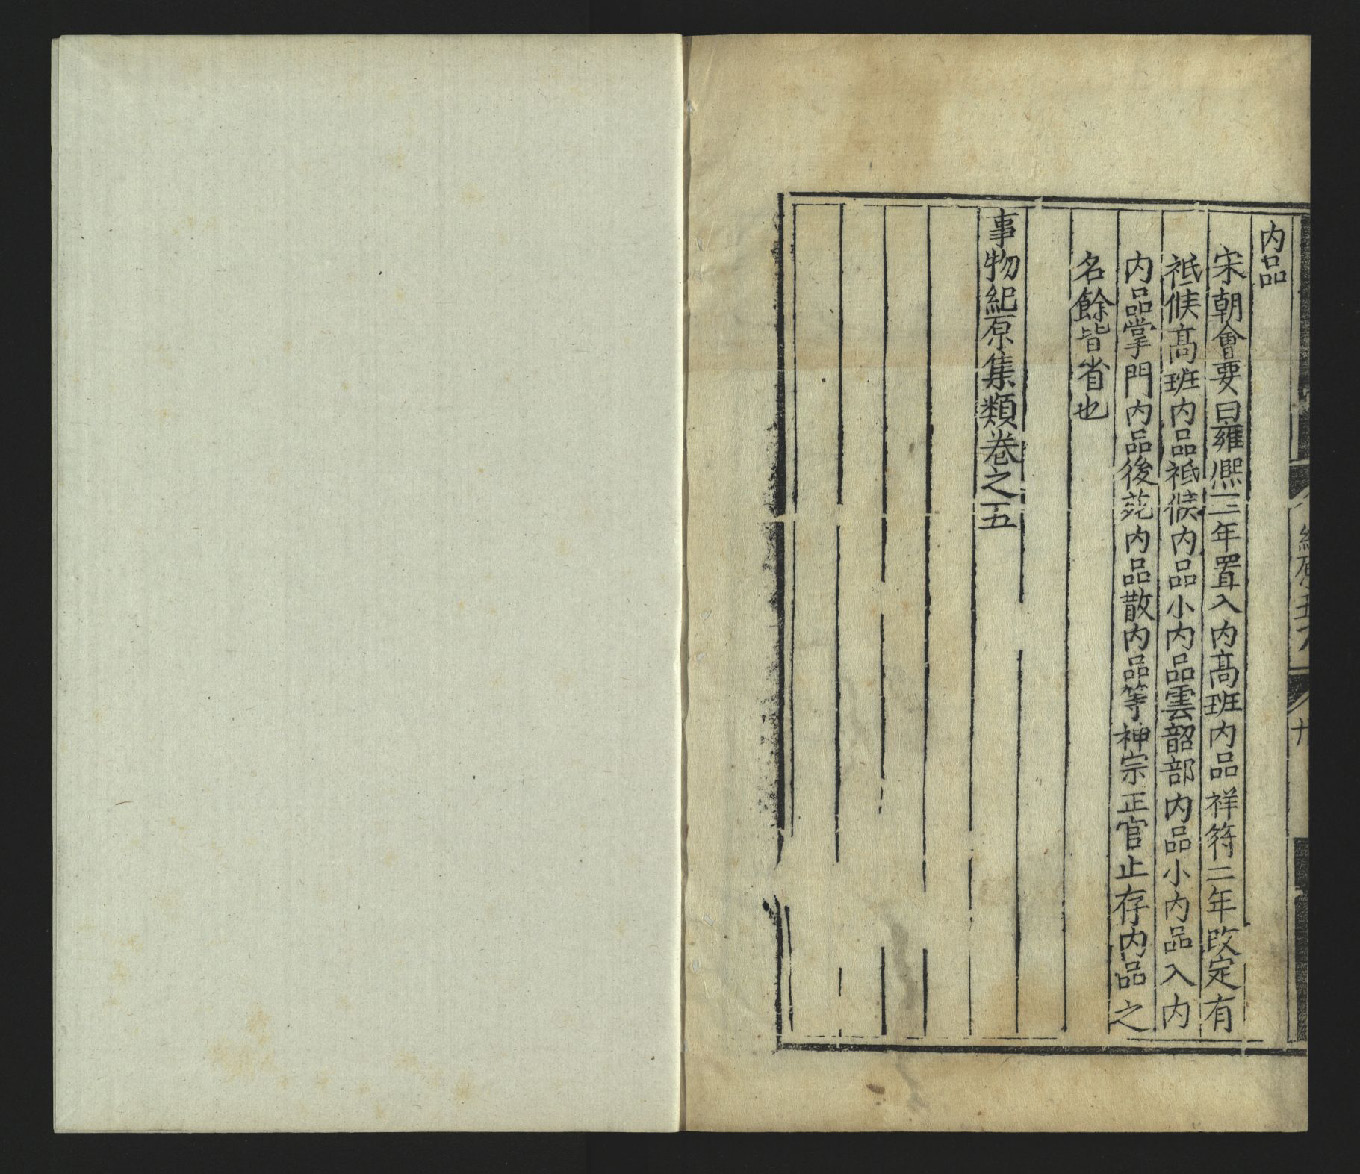 内品
宋朝會要曰雍熈三年置入内髙班内品祥符二年改定有
祗候髙班内品祗候内品小内品雲韶部内品小内品入内
内品掌門内品後苑内品散内品等神宗正官止存内品之
名餘皆省也
事物紀原集類卷之五